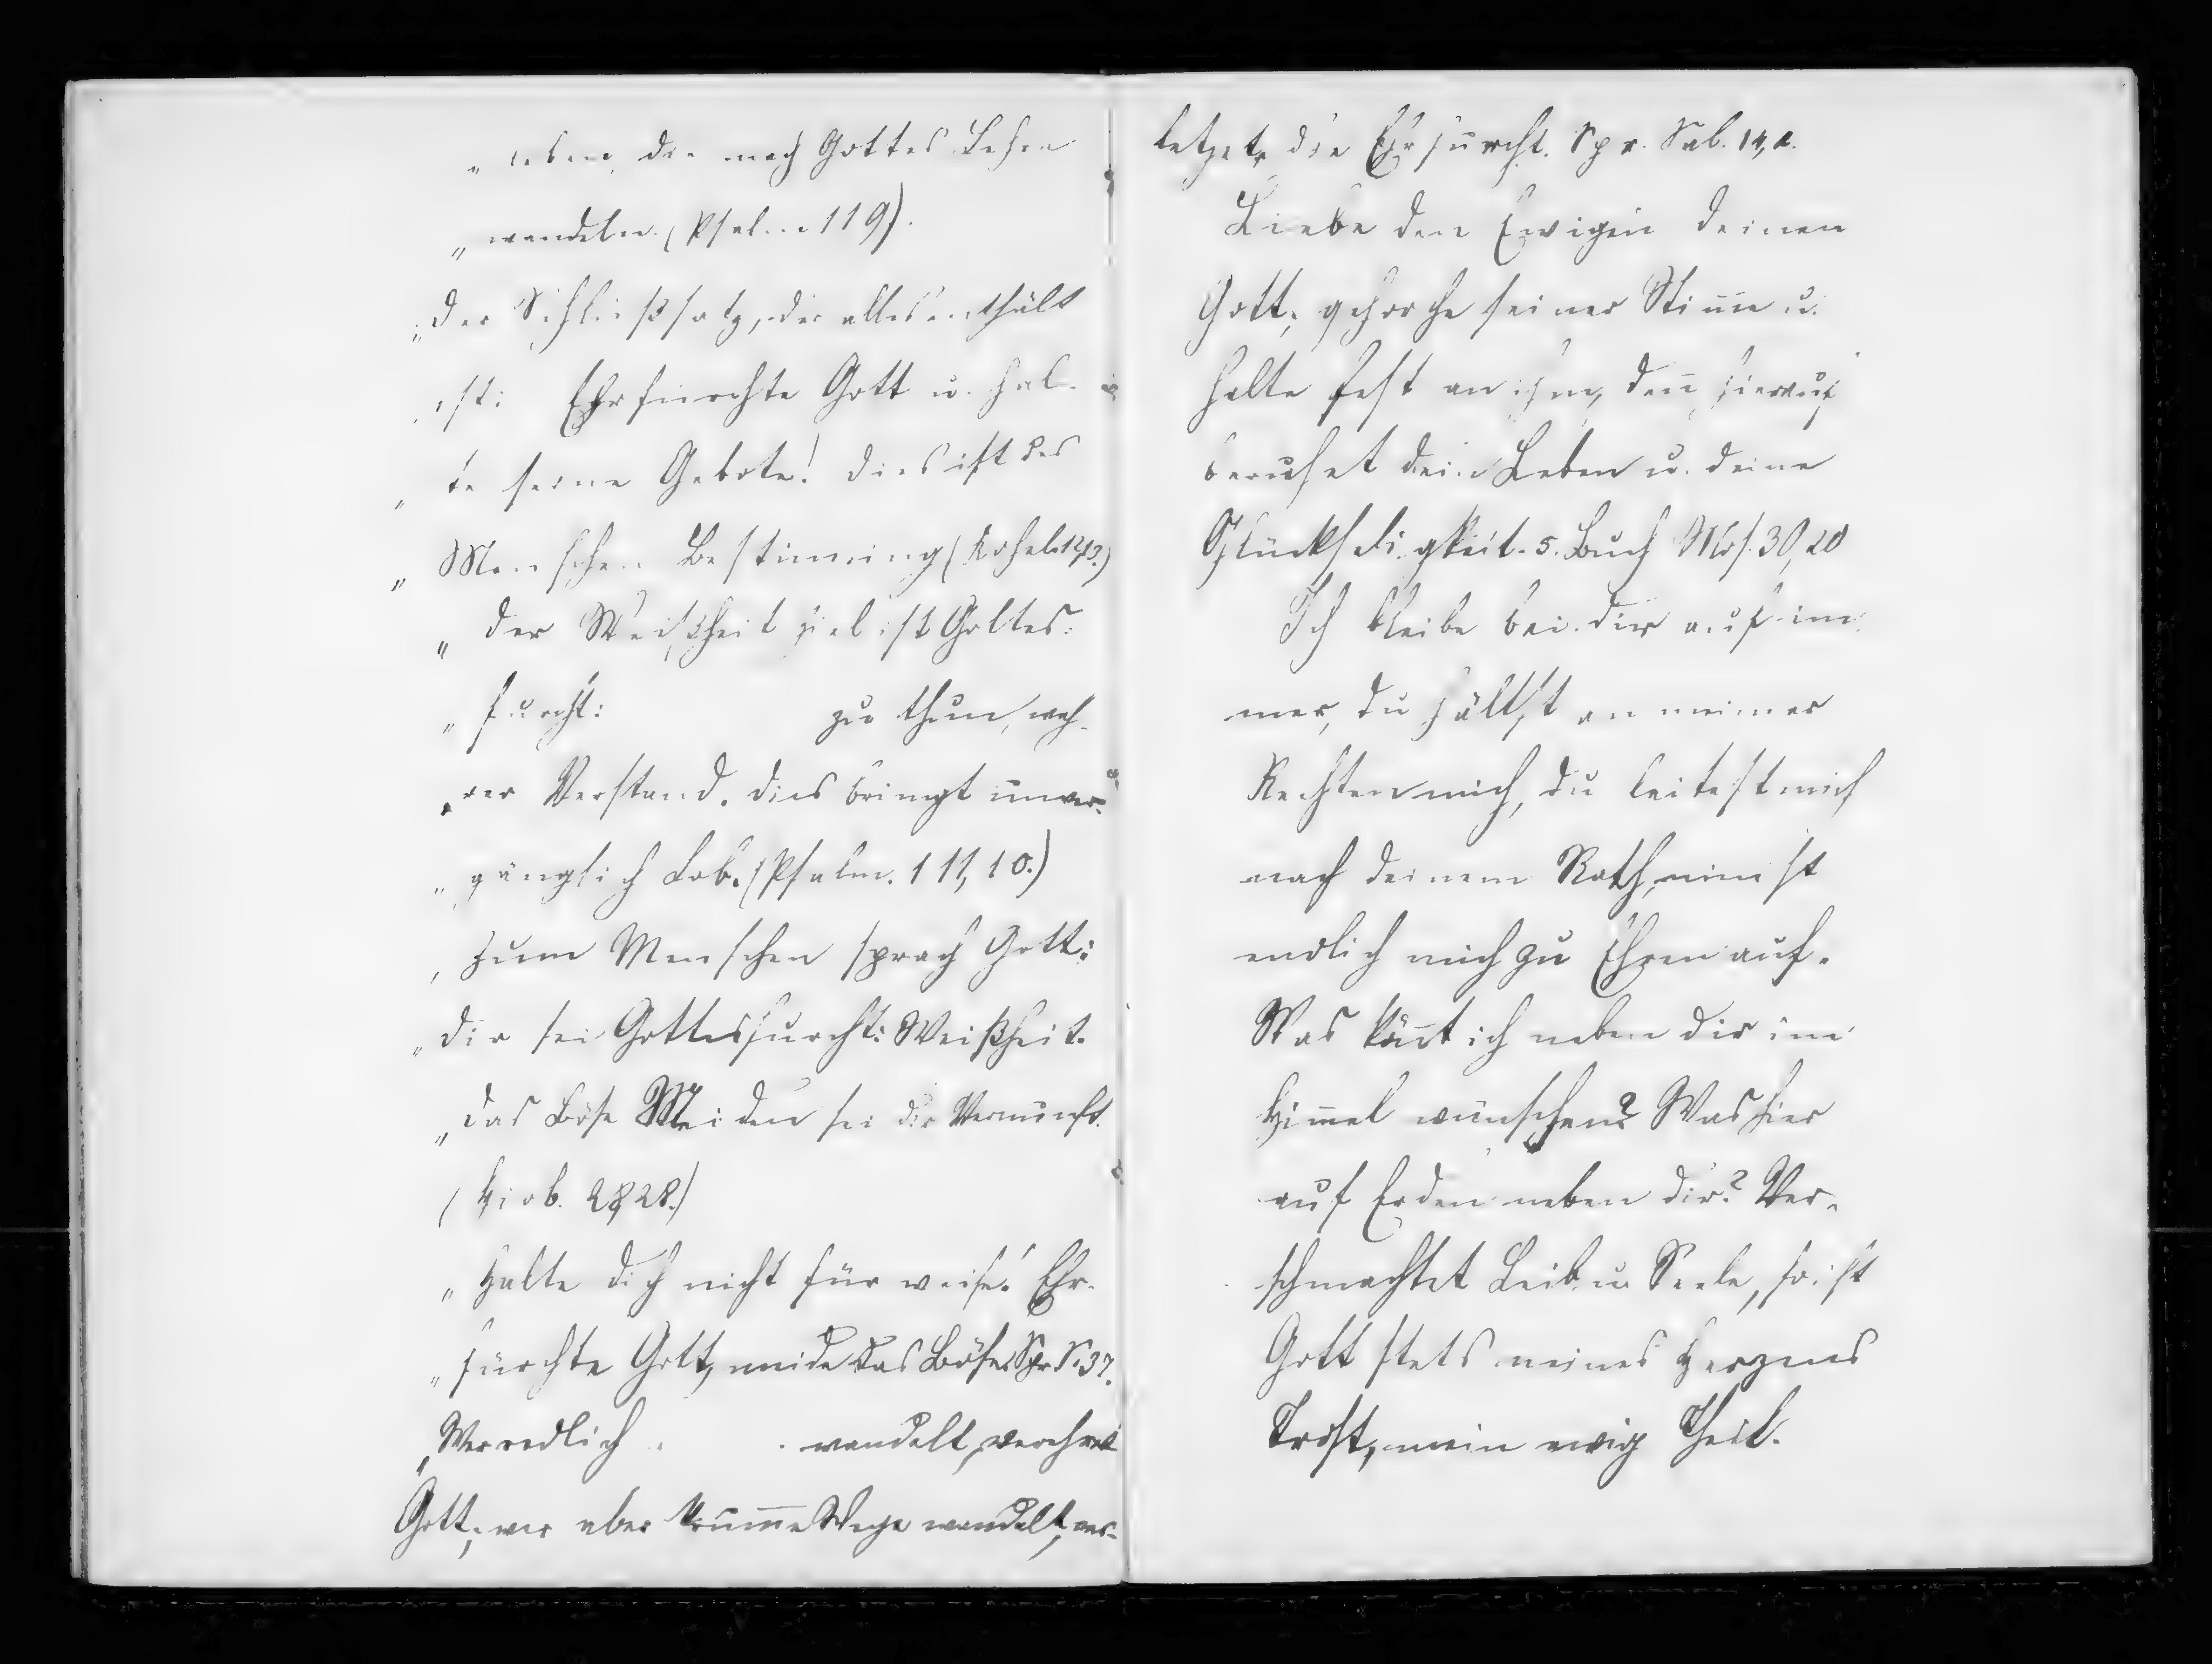 „ leben, die nach Gottes Lehre
„ wandeln. (Psalm 119).
„ Der Schlußsatz, der alles enthält
„ ist: Ehrfürchte Gott u. hal-
„ te seine Gebote! Dies ist des
„ Menschen Bestimmung (Kohel. 12,13.)
„ Der Weißheit Ziel ist Gottes-
„ furcht: zu thun, wah-
„ rer Verstand. Dies bringt unver-
„ gänglich Lob. (Psalm. 111,10.)
„ Zum Menschen sprach Gott:
„ Dir sei Gottesfurcht: Weißheit.
„ Das Böse Meiden sei dir Vernunft.
(Hiob. 28,28.)
„ Halte dich nicht für weise! Ehr-
„ fürchte Gott, meide das Böse. Spr. S. 3 7.
„ Wer redlich wandelt, verehret
Gott; wer aber krum̅e Wege wandelt, ver-
letzet die Ehrfurcht. Spr. Sal. 14,2.
Liebe den Ewigen deinen
Gott; gehorche seiner Stim̅e u.
halte fest an ihm, den̅ hierauf
beruhet dein Leben u. deine
Glückseligkeit. 5. Buch Mos. 30,20
Ich bleibe bei dir auf im-
mer, du hältst an meiner
Rechten mich, du leitest mich
nach deinem Rath, nim̅st
endlich mich zu Ehren auf.
Was kön̅t ich neben dir im
Him̅el wünschen? Was hier
auf Erden neben dir? Ver-
schmachtet Leib u. Seele, so ist
Gott stets meines Herzens
Trost, mein ewig Theil.